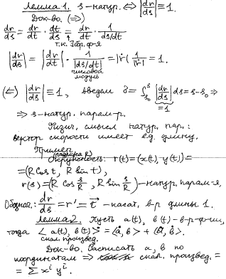 Лемма 1. s-натур. ⇔ |dr/ds| ≡ 1.
Док-во. (⇒)
dr/ds = dr/dt · dt/ds = dr/dt · 1/(ds/dt)
т.к.
|dr/ds| = |dr/dt| · 1/|ds/dt| = |ṙ| 1/|ṙ| = 1.
(⇐) |dr/ds| ≡ 1, введем ∫ |dr/ds| ds = s - s₀ ⇒
⇒ s - натур. парам-р.
Физич. смысл натур. пар.:
вектор скорости имеет ед. длину.
Пример.
Окружность: r(t) = (x(t), y(t)) =
= (R cos t, R sin t),
r(s) = (R cos s/R, R sin s/R) - натур. парам-я.
Обознач.: dr/ds = r' = τ - касат. в-р длины 1.
Лемма 2. Пусть a(t), b(t) - в-р-ф-ии,
тогда < a(t), b(t) >' = <a', b> + <a, b'>.
скал. произвед.
Док-во. Расписать a, b по
координатам ⇒ скал. произвед. =
= Σ xⁱ yⁱ.